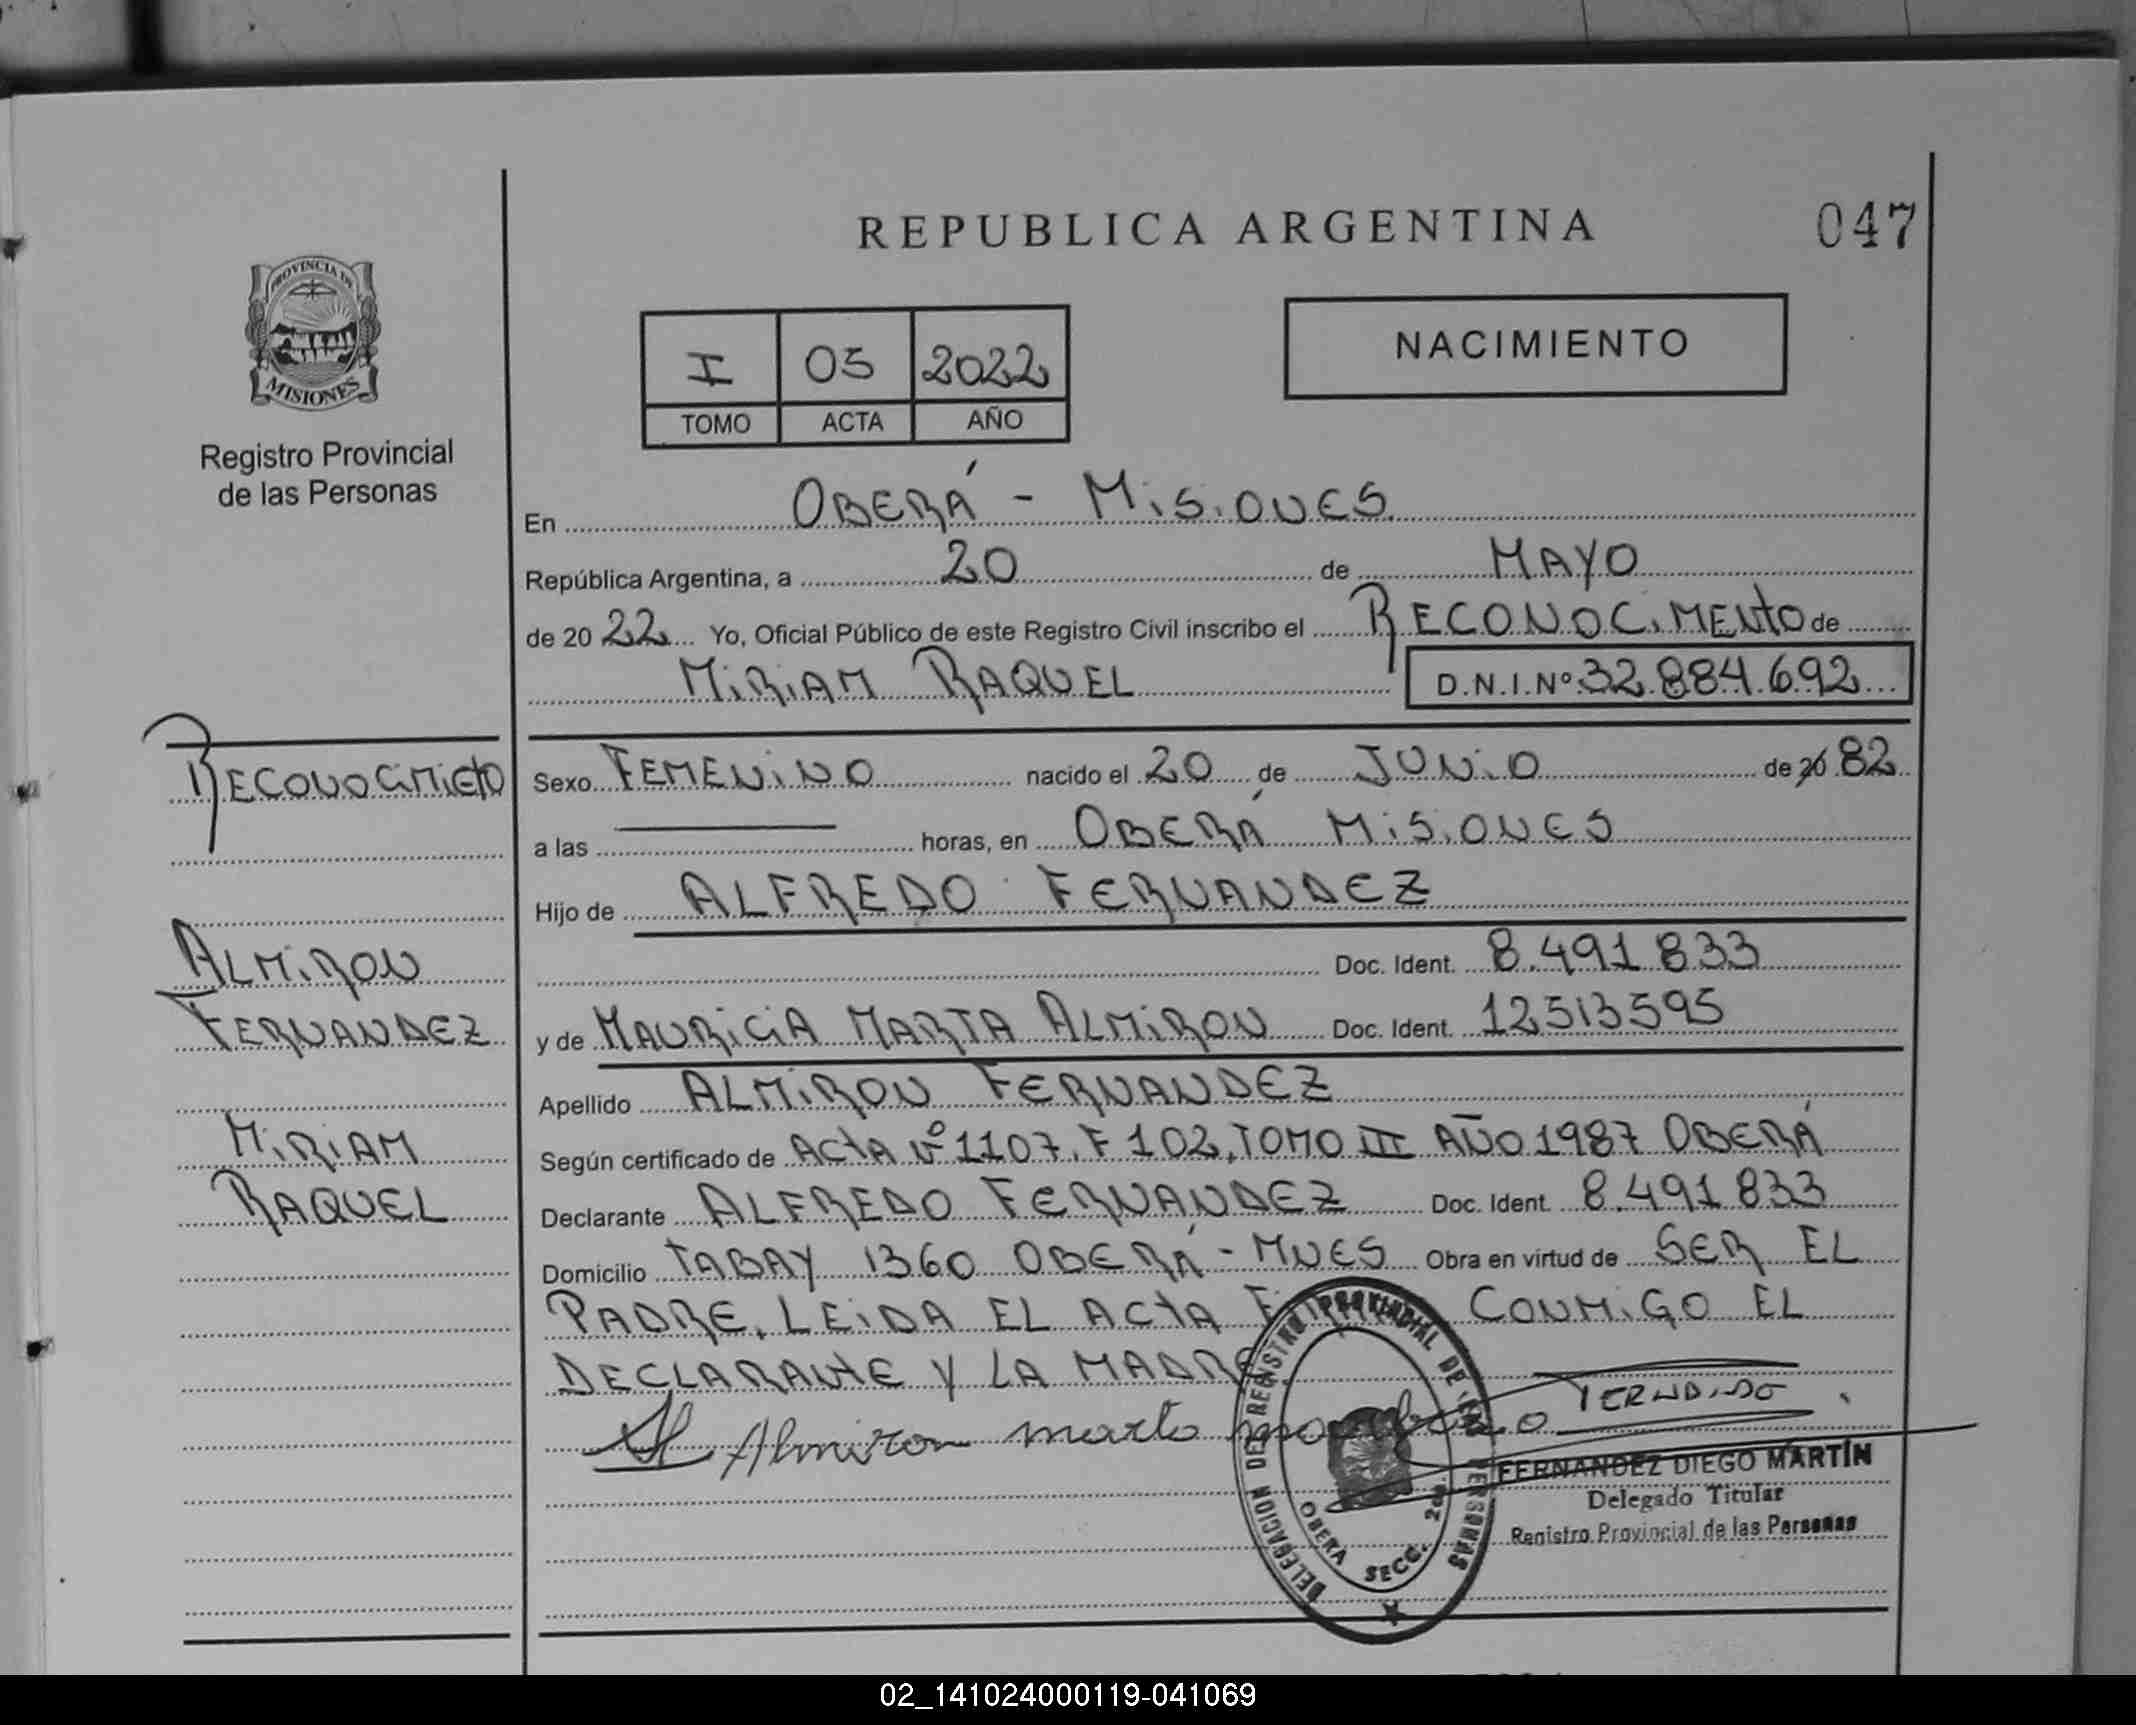 REPUBLICA ARGENTINA
047
PROVINCIA DE
MISIONES
Registro Provincial
de las Personas
I 05 2022
TOMO ACTA AÑO
NACIMIENTO
En OBERÁ - MISIONES
República Argentina, a 20 de MAYO
de 20 22 Yo, Oficial Público de este Registro Civil inscribo el RECONOCIMENTO de
MIRIAM RAQUEL D.N.I.Nº 32.884.692
RECONOCIMIETO
ALMIRON
FERNANDEZ
MIRIAM
RAQUEL
Sexo FEMENINO nacido el 20 de JUNIO de 20 82
a las horas, en OBERÁ MISIONES
Hijo de ALFREDO FERNANDEZ
Doc. Ident. 8.491.833
y de MAURICIA MARTA ALMIRON Doc. Ident. 12513595
Apellido ALMIRON FERNANDEZ
Según certificado de ACTA Nº 1107, F 102, TOMO III AÑO 1987 OBERÁ
Declarante ALFREDO FERNANDEZ Doc. Ident. 8.491.833
Domicilio TABAY 1360 OBERÁ - MNES Obra en virtud de SER EL
PADRE. LEIDA EL ACTA CONMIGO EL
DECLARANTE Y LA MADRE
Almiron marta
DELEGACION DEL REGISTRO PROVINCIAL DE LAS PERSONAS
OBERA SECC. 2da.
FERNANDEZ DIEGO MARTÍN
Delegado Titular
Registro Provincial de las Personas
02_141024000119-041069